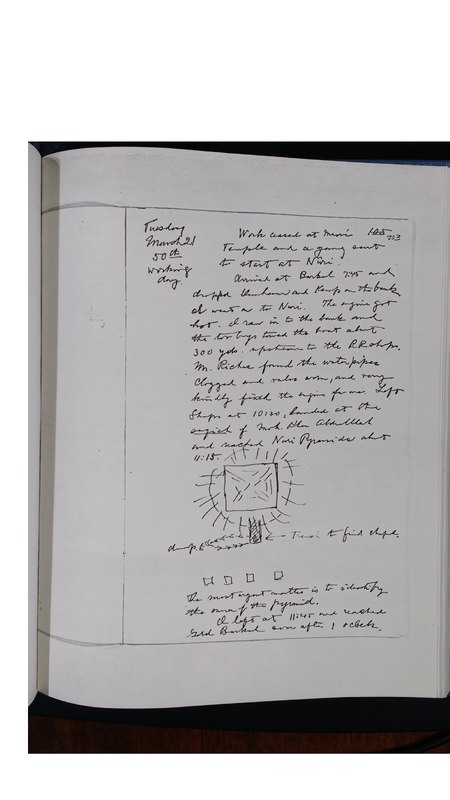 Tuesday
March 21
50th
working
day.
Work ceased at Meroi 105 723
Temple and a gang sent
to start at Nuri.
Arrived at Barkal 7:45 and
dropped Dunham and Kemp on the bank
I went on to Nuri. The engine got
hot. I ran in to the bank and
the two boys towed the boat about
300 yds. upstream to the R.R. shops.
Mr. Riches found the water pipes
clogged and valve worn, and very
kindly fixed the engine for me. Left
Shops at 10:20, landed at the
of Moh. Abdullah
and reached Nuri Pyramids about
11:15.
dump.
Trench to find chapel.
The most urgent matter is to identify
the owner of the pyramid.
I left at 11:45 and reached
Gebel Barkal soon after 1 o'clock.